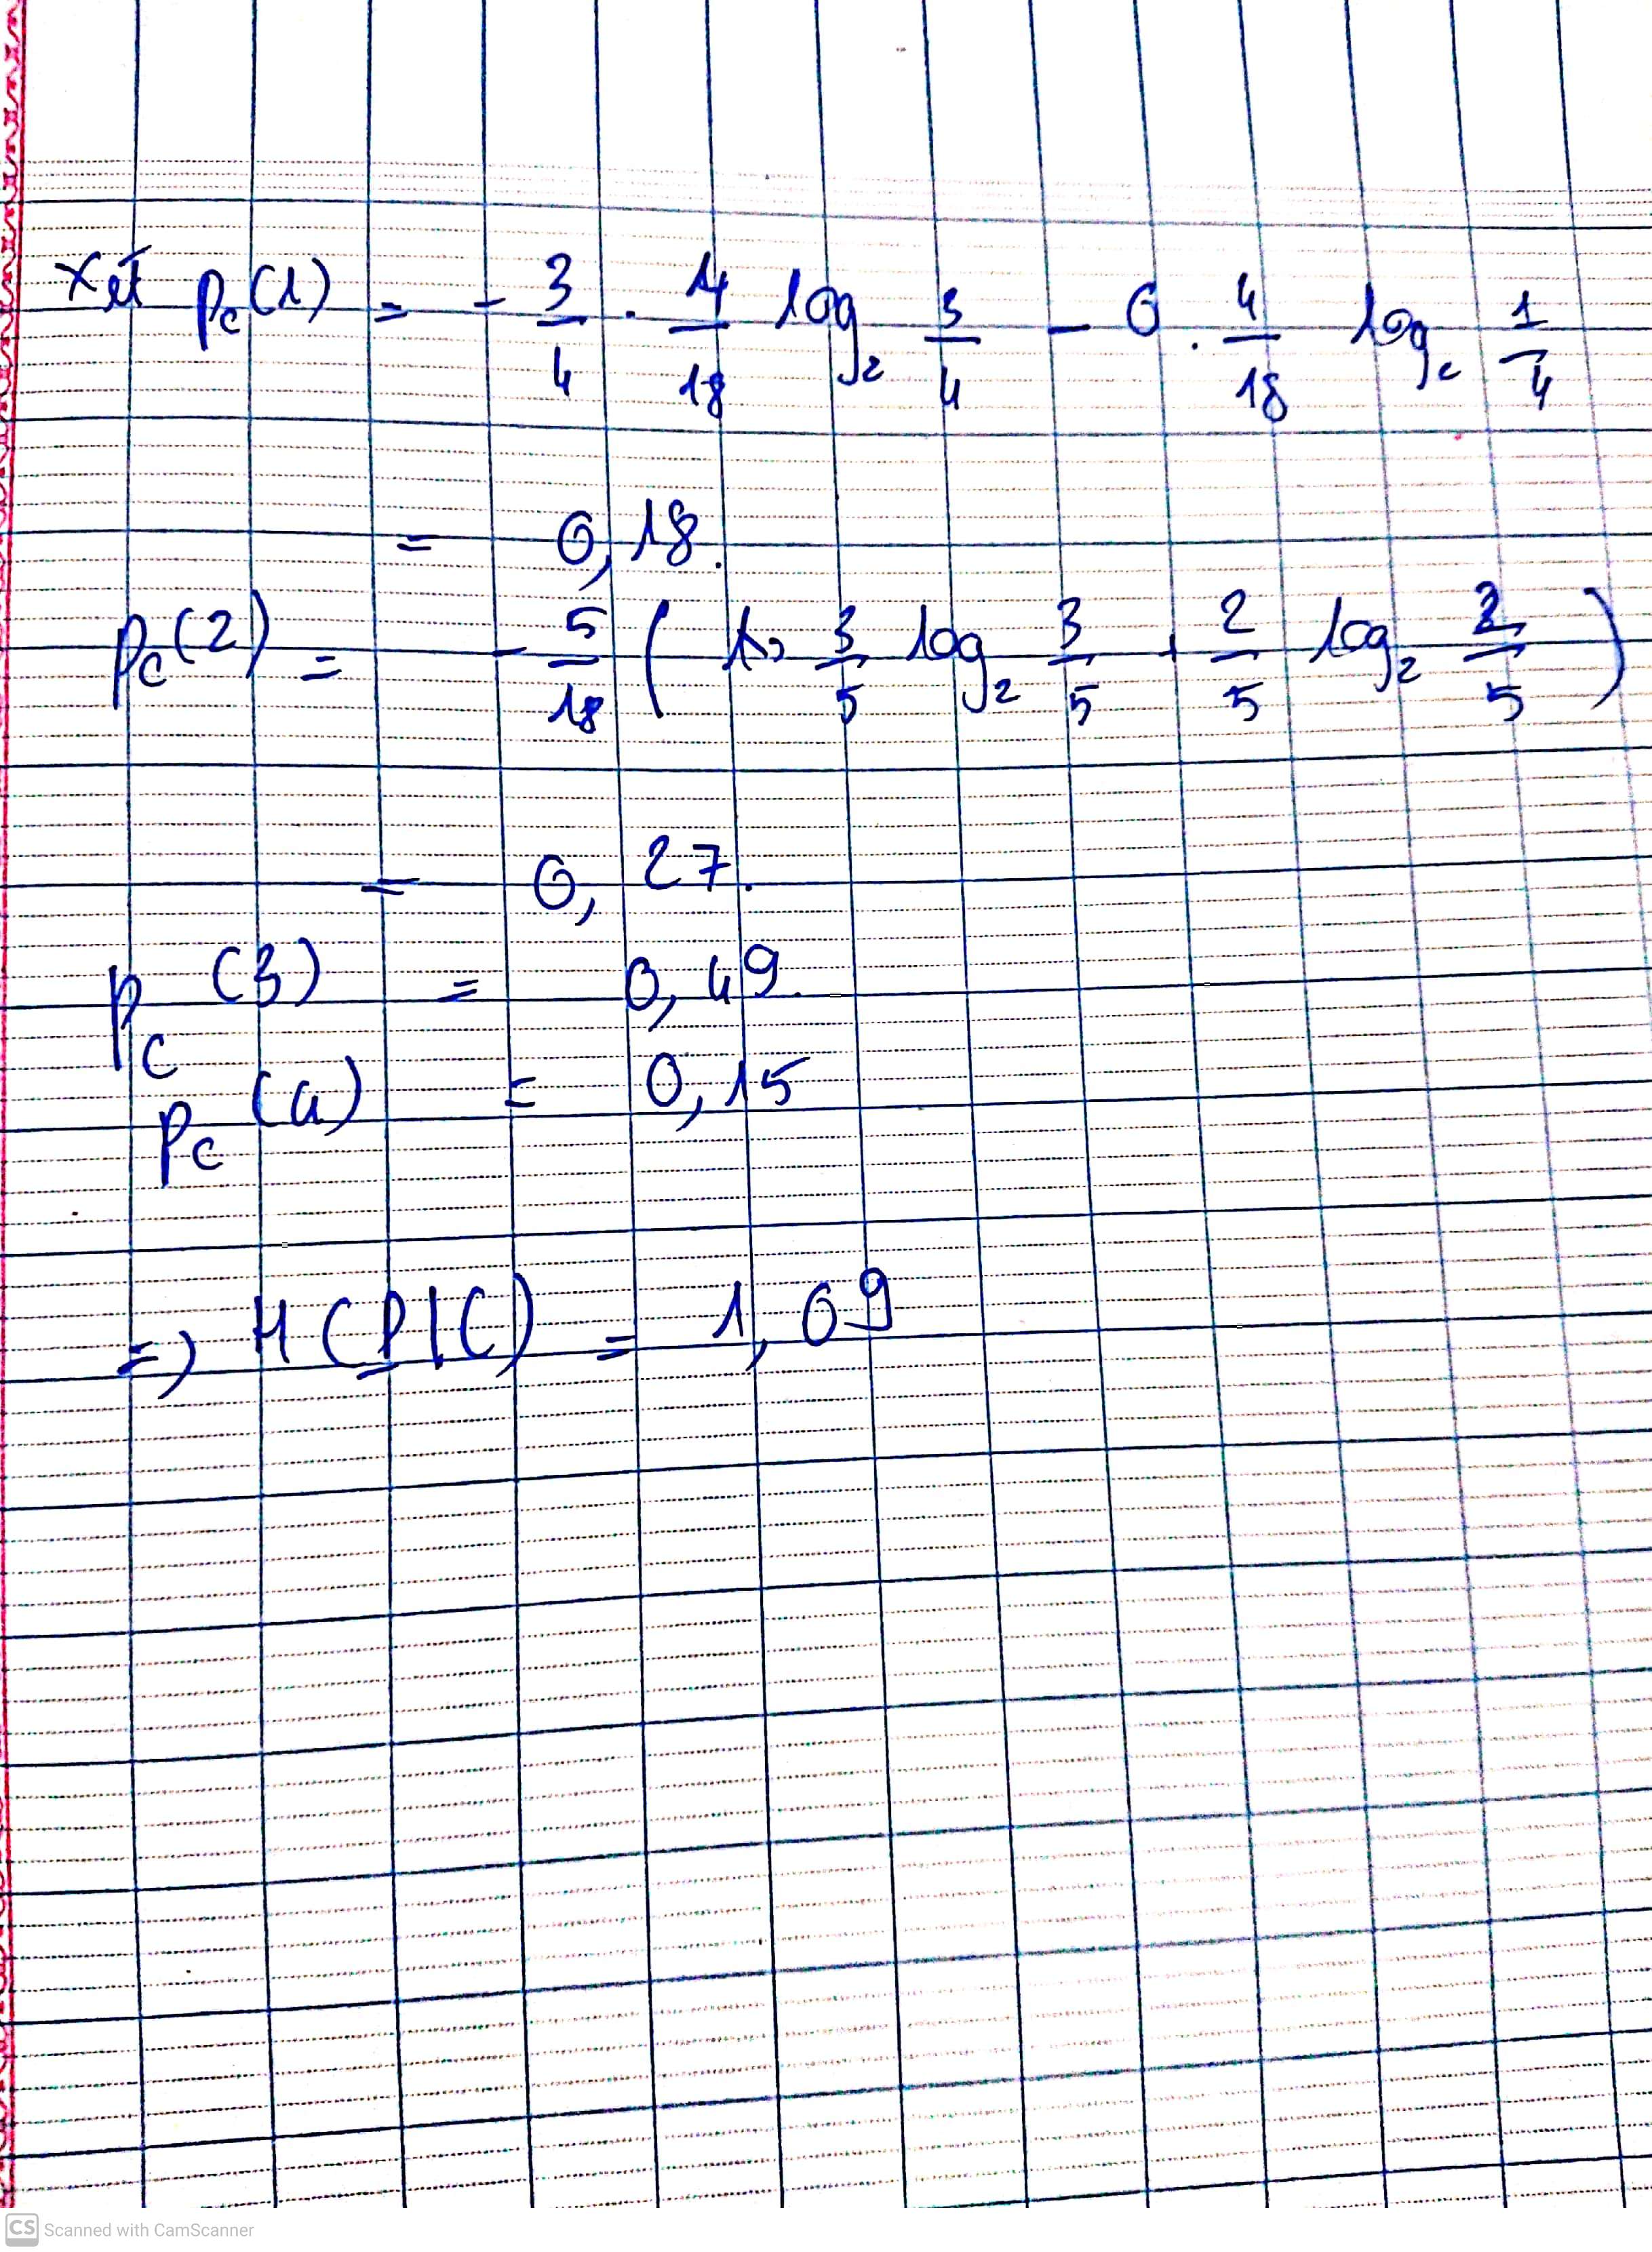 Xét Pc(1) = - 3/4 . 4/18 log2 3/4 - 0 . 4/18 log2 1/4
= 0,18.
Pc(2) = - 5/18 ( 3/5 log2 3/5 + 2/5 log2 2/5 )
= 0, 27.
Pc(3) = 0,49.
Pc(4) = 0,15
=> H(P|C) = 1,09
CS Scanned with CamScanner